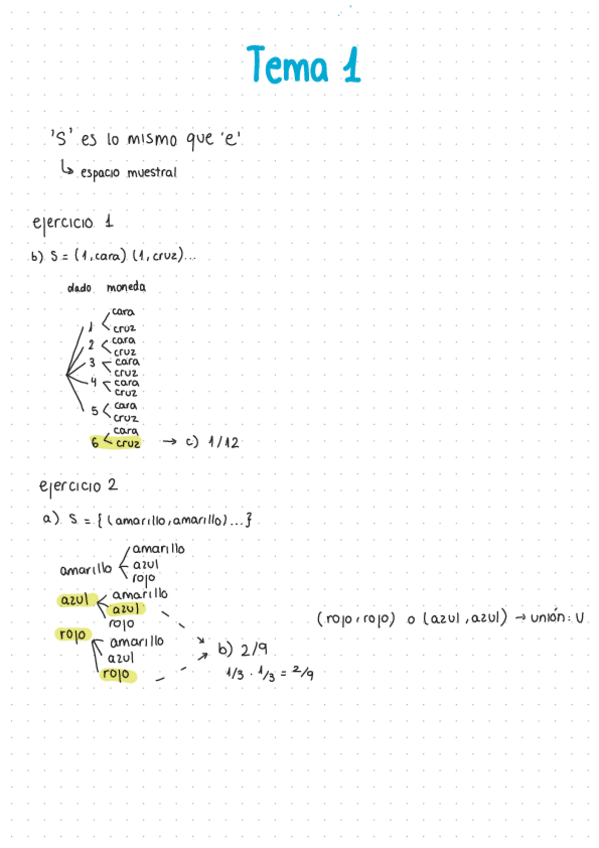 Tema 1
'S' es lo mismo que 'e'
↳ espacio muestral
ejercicio 1
b) S = (1,cara) (1,cruz)...
dado moneda
1 cara
cruz
2 cara
cruz
3 cara
cruz
4 cara
cruz
5 cara
cruz
6 cara
cruz → c) 1/12
ejercicio 2
a) S = { (amarillo,amarillo)...}
amarillo amarillo
azul
rojo
azul amarillo
azul
rojo
(rojo,rojo) o (azul,azul) → unión: U
rojo amarillo
azul
rojo
b) 2/9
1/3 · 1/3 = 2/9